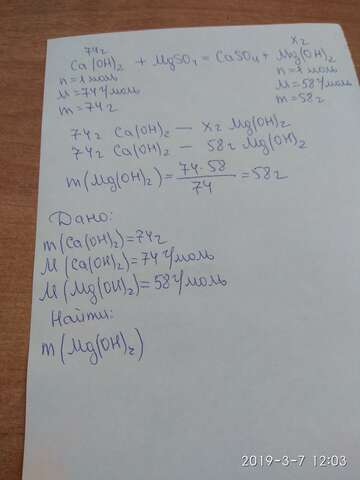 74г x г
Ca(OH)₂ + MgSO₄ = CaSO₄ + Mg(OH)₂
n=1моль n=1 моль
M=74г/моль M=58г/моль
m=74г m=58г
74г Ca(OH)₂ — xг Mg(OH)₂
74г Ca(OH)₂ — 58г Mg(OH)₂
m(Mg(OH)₂)= 74·58 / 74 =58г
Дано:
m(Ca(OH)₂)=74г
M(Ca(OH)₂)=74г/моль
M(Mg(OH)₂)=58г/моль
Найти:
m(Mg(OH)₂)
2019-3-7 12:03